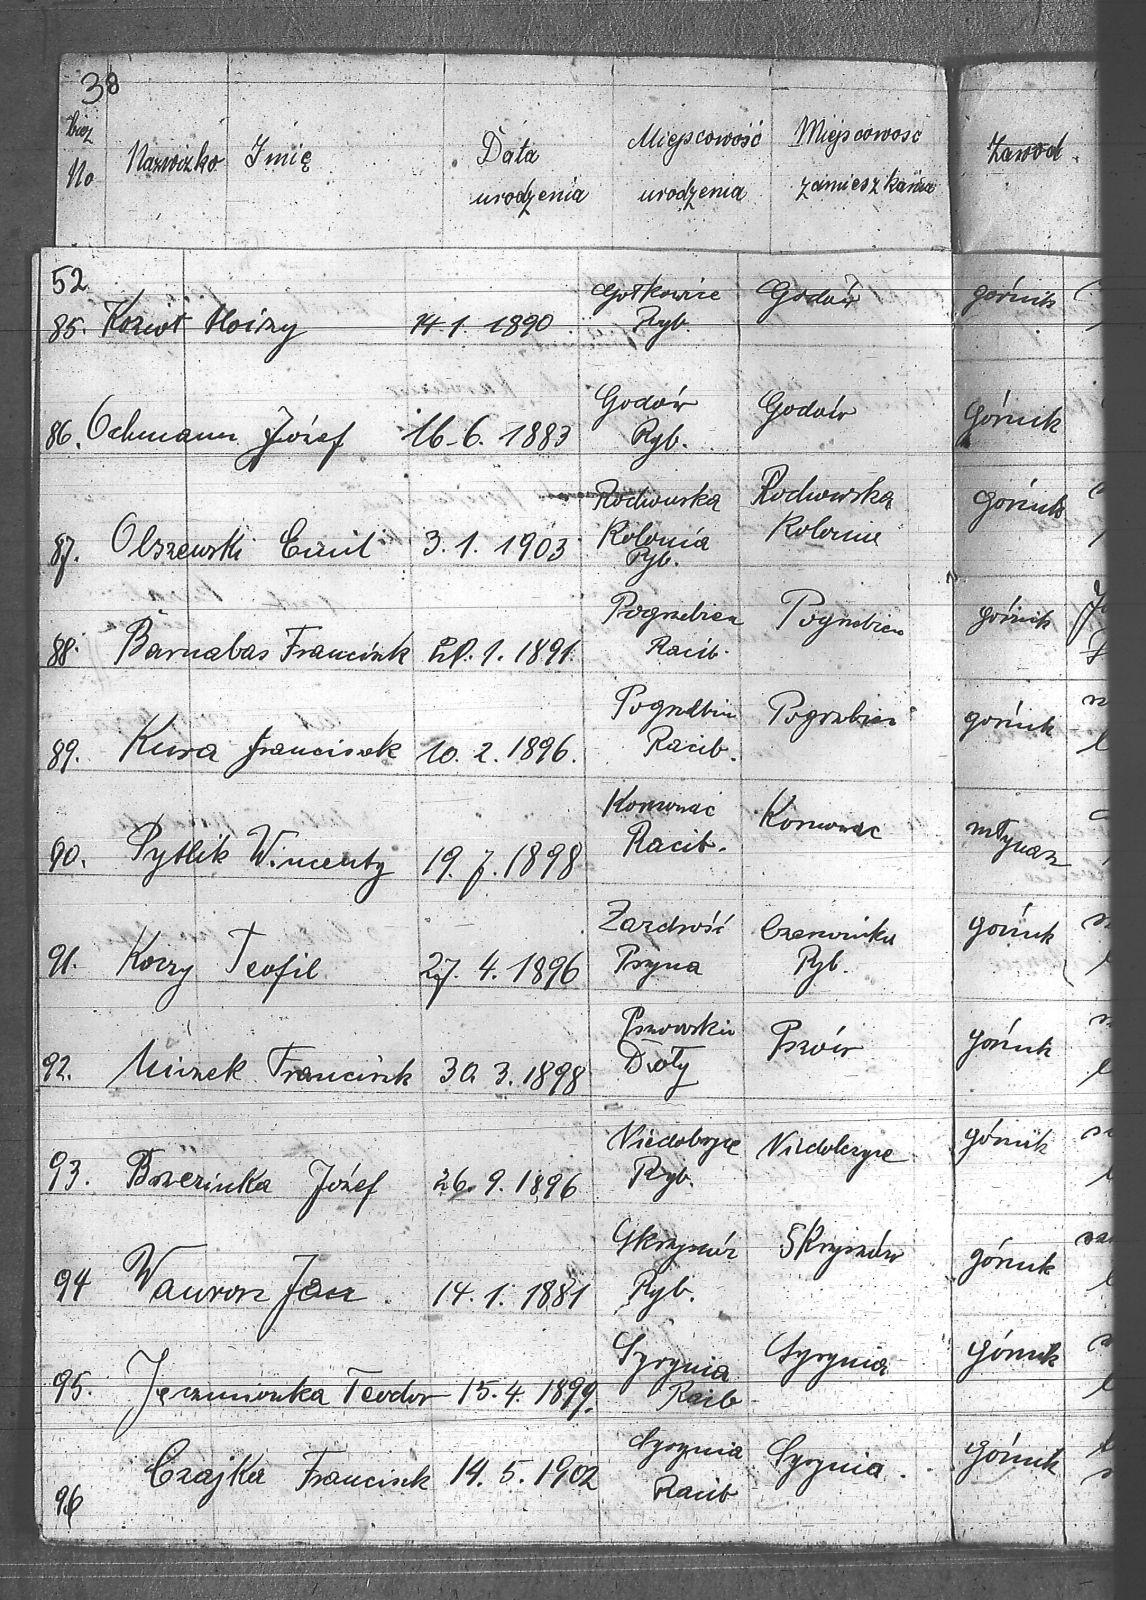 38
bież No Nazwizko Imię Data urodzenia Miejscowość urodzenia Miejscowość zamieszkania Zawod
52
85. Alojzy 14.1. 1890 Gołkowice Ryb. Godów górnik
86. Ochmann Józef 16.6. 1883 Godów Ryb. Godów Górnik
87. Olszewski Emil 3.1. 1903 Kolonia Ryb. Kolonie Górnik
88. Barnabas Francisek 1. 1891. Pogrzebien Racib. Pogrzebien górnik
89. Kura Francisek 10. 2. 1896. Pogrzebien Racib. Pogrzebien górnik
90. Pytlik Wincenty 19. 7. 1898 Kornowac Racib. Kornowac młynarz
91. Koczy Teofil 27. 4. 1896 Zazdrość Pszyna Czerwionka Ryb. górnik
92. Francisek 30. 3. 1898 Pszowskie Doły Pszów górnik
93. Brzezinka Józef 26. 9. 1896 Niedobczyce Ryb. Niedobczyce górnik
94 Jan 14. 1. 1881 Skrzyszów Ryb. Skrzyszów górnik
95. Jęczmionka Teodor 15. 4. 1899. Syrynia Racib Syrynia górnik
96 Czajka Francisek 14. 5. 1902 Syrynia Racib Syrynia. górnik